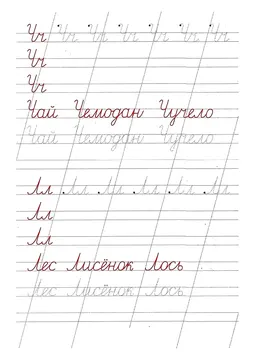 Чч Чч Чч Чч Чч Чч Чч
Чч
Чч
Чай Чемодан Чучело
Чай Чемодан Чучело
Лл Лл Лл Лл Лл Лл
Лл
Лл
Лес Лисёнок Лось
Лес Лисёнок Лось